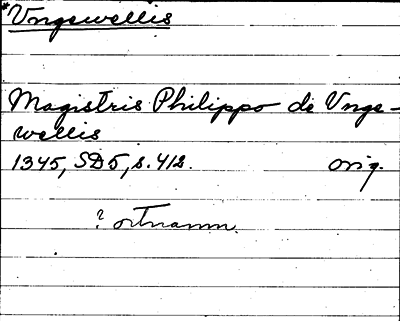 *Vngewellis
Magistris Philippo de Vnge-
wellis
1345, SD5, s. 412. orig.
? ortnamn.